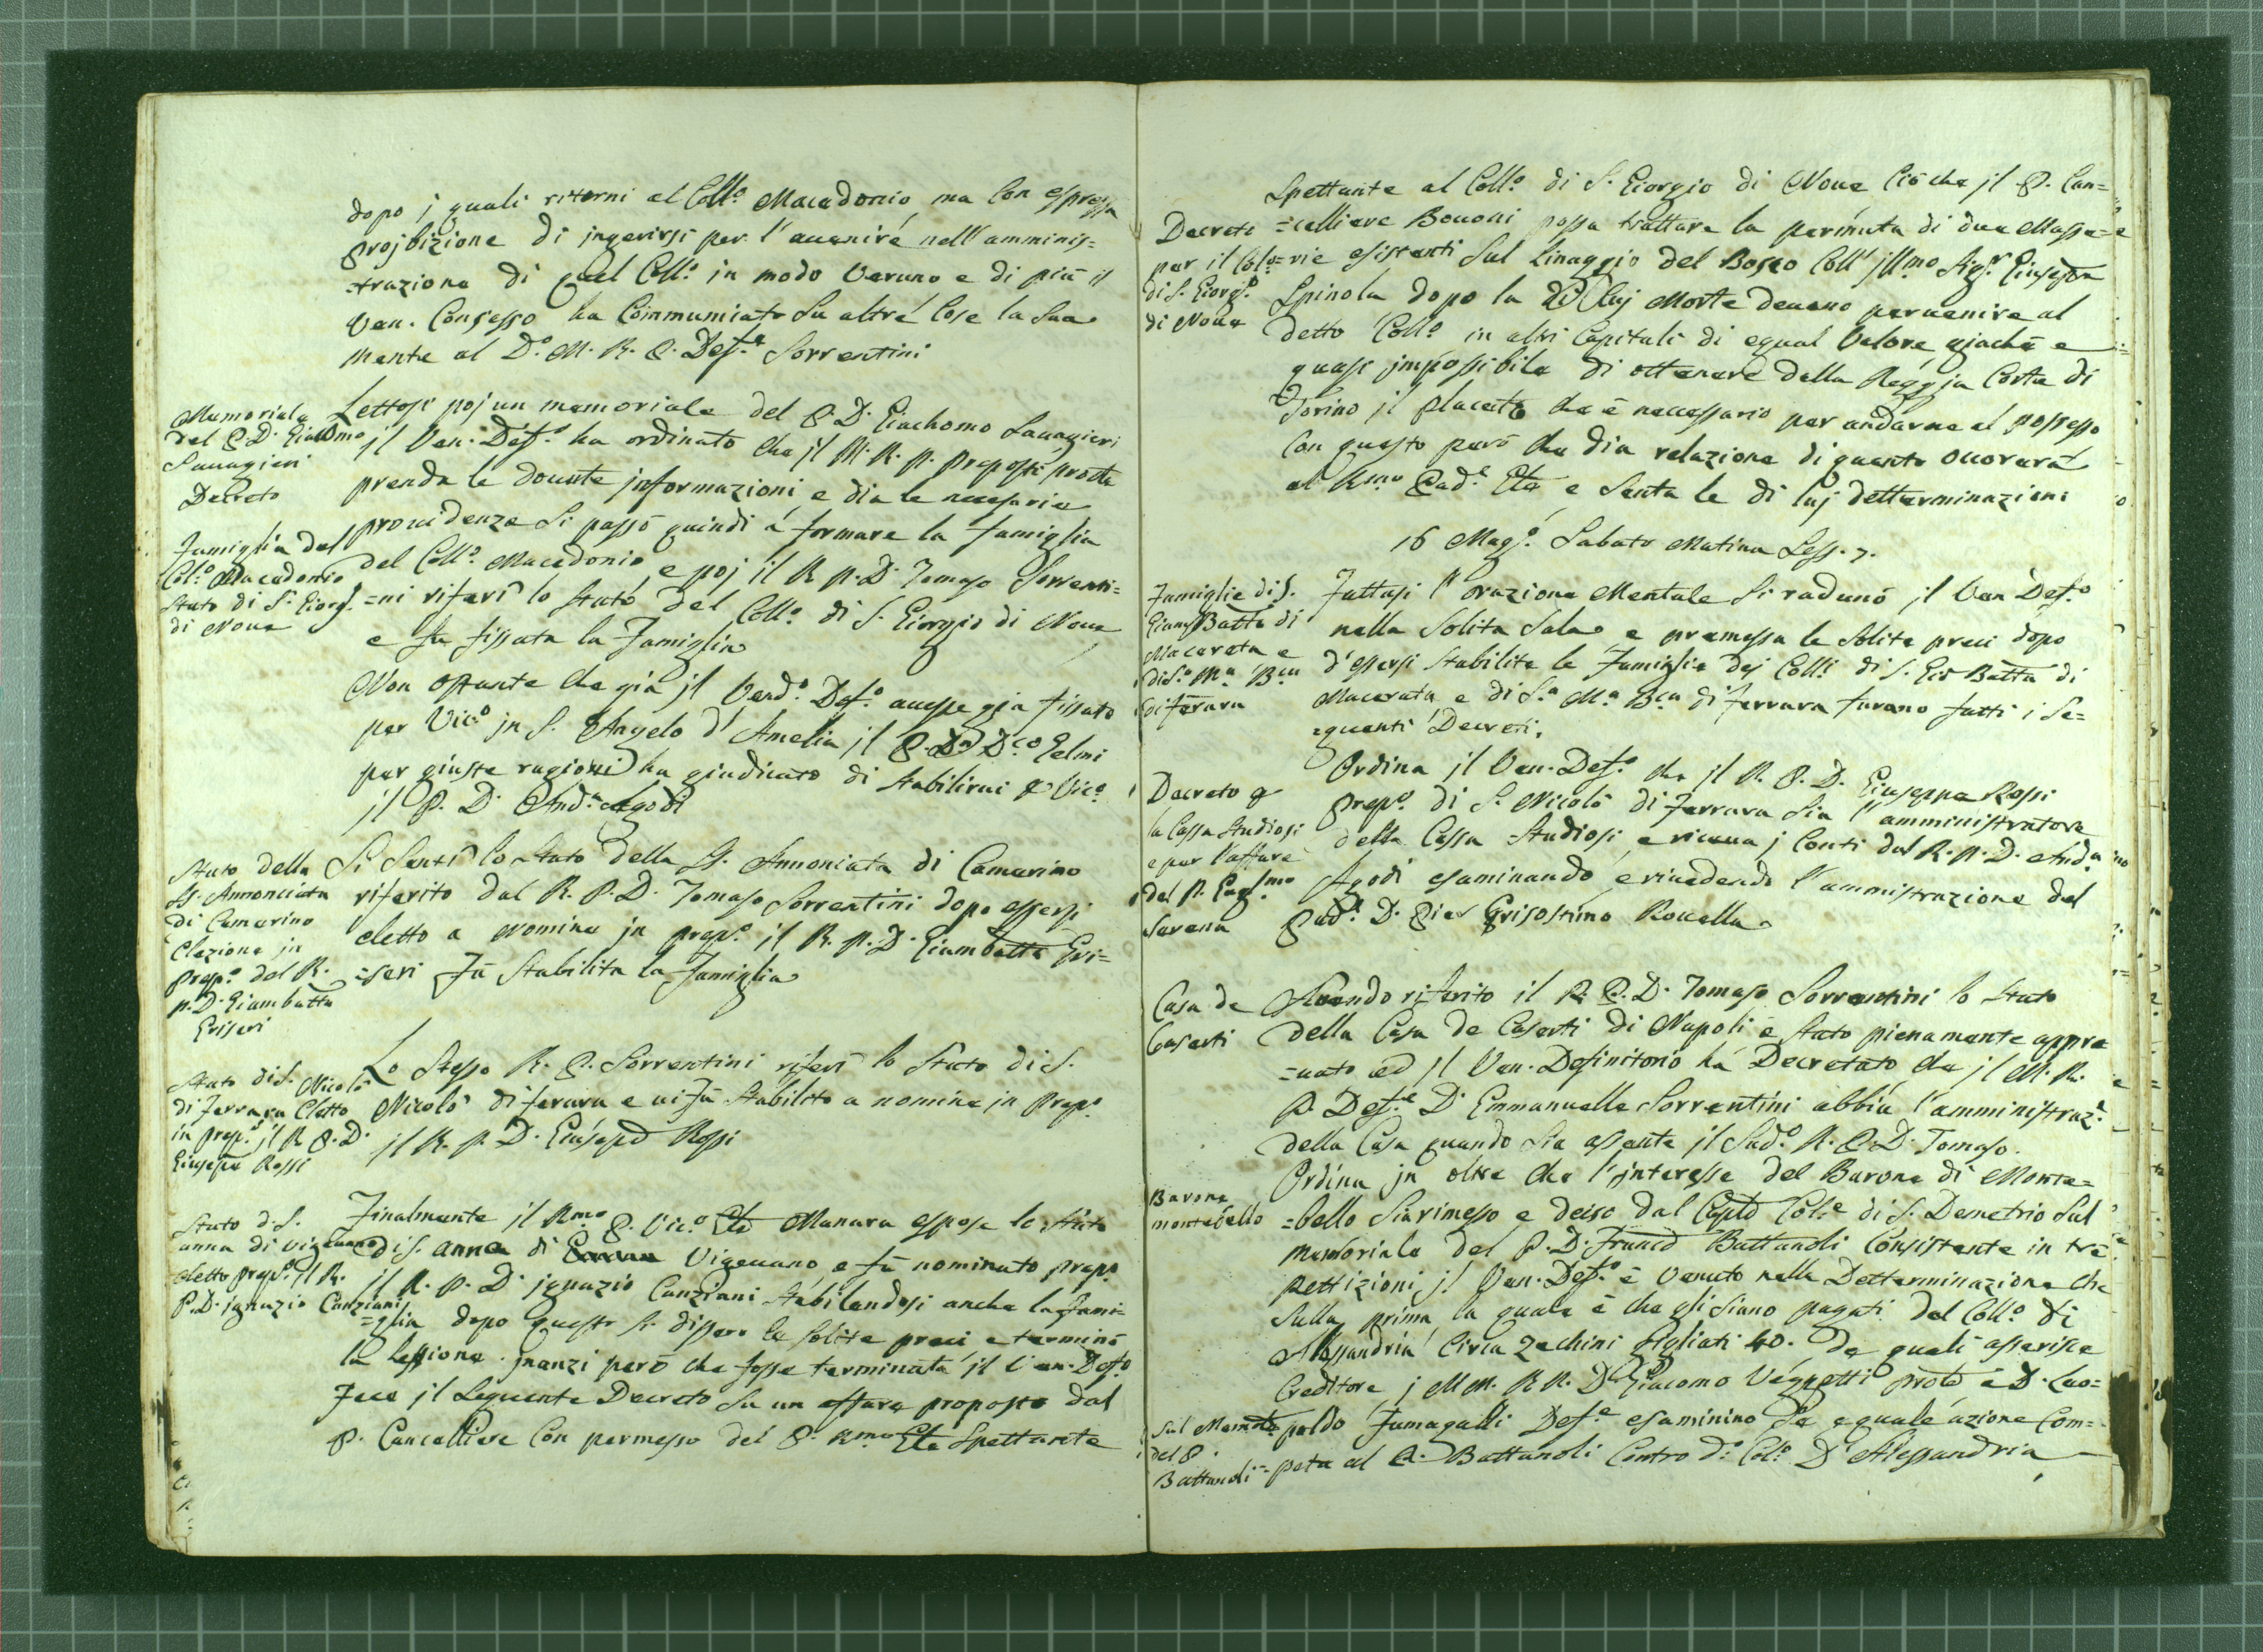 dopo j quali ritorni al Coll.º Macedonio ma con espressa
projbizione di ingerirsi per l'auenire nell'amminis=
=trazione di quel Coll.º in modo Veruno e di più il
Ven. Consesso ha Communicato Su altre Cose la Sua
mente al D.º M. R. P. Def.e Sorrentini
Memoriale
del P. D. Giacomo
Sauagieri
Decreto
Lettosi poj un memoriale del P. D. Giachomo Sauagieri
il Ven. Def.º ha ordinato che jl M. R. P. Preposto
prenda le douute jnformazioni e dia le necesarie
prouidenze Si passò quindi à formare la famiglia
Famiglia del
Col.º Macedonio
Stato di S. Giorg.º
di Noue
del Coll.º Macedonio e poj il R. P. D. Tomaso Sorrenti=
=ni riferì lo stato del Coll.º di S. Giorgio di Noue
e fu fissata la Famiglia
Non ostante che già jl Vend.º Def.º auesse già fissato
per Vic.º jn S. Angelo d'Amelia jl P. D. D.co Gelmi
per giuste ragioni ha giudicato di Stabilirui p Vic.º
jl P. D. And.a Agodi
Stato della
SS. Annonciata
di Camerino
Elezione jn
prep.º del R.
P. D. Giambatta
Griseri
Si Sentì lo Stato della SS. Annonciata di Camerino
riferito dal R. P. D. Tomaso Sorrentini dopo essersi
eletto a Nomina jn prep.º il R. P. D. Giambatta Gri=
=seri Fù Stabilita la Famiglia
Stato di S. Nicolò
di Ferrara Eletto
in prep.º jl R. P. D.
Giuseppe Rossi
Lo Stesso R. P. Sorrentini riferì lo Stato di S.
Nicolò di ferara e ui fù Stabilito a nomina jn Prep.º
jl R. P. D. Giusepe Rossi
Stato di S.
anna di vigeuano
eletto prep.º jl R.
P. D. jgnazio Canziani
Finalmente il Rmo P. Vic.º Gle Manara espose lo Stato
di S. anna di Vigeuano, e fù nominato prep.º
jl R. P. D. jgnazio Canziani Stabilendosi anche la fami=
=glia dopo questo Si dissero le Solite preci e terminò
la Sessione. jnanzi però che fosse terminata jl Ven. Def.º
Fece jl Seguente Decreto Su un affare proposto dal
P. Cancelliere Con permesso del P. Rmo Gle Spettante
Spettante al Coll.º di S. Giorgio di Noue Ciò che jl P. Can=
Decreto
per il Col.º
di S. Giorg.º
di Noue
=celliere Bouoni possa trattare la permuta di due Masse=
=rie esistenti Sul Linaggio del Bosco Coll' jll.mo Sig.r Giuseppe
Spinola dopo la di luj Morte deueno peruenire al
detto Coll.º in altri Capitali di egual Valore giachè e
quasi jmpossibile di ottenere dalla Reggia Corte di
Torino jl placeto che è necessario per andarne al possesso
Con questo però che dia relazione di quanto ouorerà
al Rmo Pad.e Gle e Senta le di luj detterminazioni
16 Mag.º Sabato Matina Sess. 7.
Famiglie di S.
Giam Batta di
Macerata e
di S.a M.a B.ca
di ferara
Fattasi l'orazione Mentale Si radunò jl Ven Def.º
nella Solita Sala e premesse le Solite preci dopo
d'essersi Stabilite le Famiglie dej Colli di S. Gio Batta di
Macerata e di S.a M.a B.ca di Ferrara furono fatti i Se=
=guenti Decreti.
Decreto p
la Cassa Studiosi
e per l'affare
del P. Gris.mo
Rouena
Ordina jl Ven. Def.º che jl R. P. D. Giuseppe Rossi
Prep.º di S. Nicolò di Ferrara Sia l'amministratore
della Cassa Studiosi, e riceua j Conti dal R. P. D. And.a
Agodi esaminando, e riuedendo l'ammistrazione del
Pad.e D. Gio Grisostimo Rouella
Casa de
Caserti
Auendo riferito il R. P. D. Tomaso Sorrentini lo Stato
della Casa de Caserti di Napoli è stato pienamente appro
=uato ed jl Ven. Definitorio hà Decretato che jl M. R.
P. Def.e D. Emmanuelle Sorrentini abbia l'amministraz.e
della Casa quando Sia assente jl Sud.º R. P. D. Tomaso.
Barone
montebello
Ordina jn oltre che l'jnteresse del Barone di Monte=
=bello Sia rimesso e deciso dal Capto Col.e di S. Demetrio Sul
memoriale del P. D. Franco Battanoli Consistente in tre
pettizioni, jl Ven. Def.º è Venuto nella Detterminazione che
Sulla prima la quale è che gli siano pagati dal Coll.º di
Alessandria Circa Zechini Gigliati 40. de quali asserisce
Creditore j MM. RR. D. Giacomo Vegnetti e D. Leo=
Sul Memole
del P.
Battanoli
poldo Fumagalli Def.e esaminino Se e quale azione Com=
=peta al P. Battanoli Contro d.º Col.º D'Alessandria